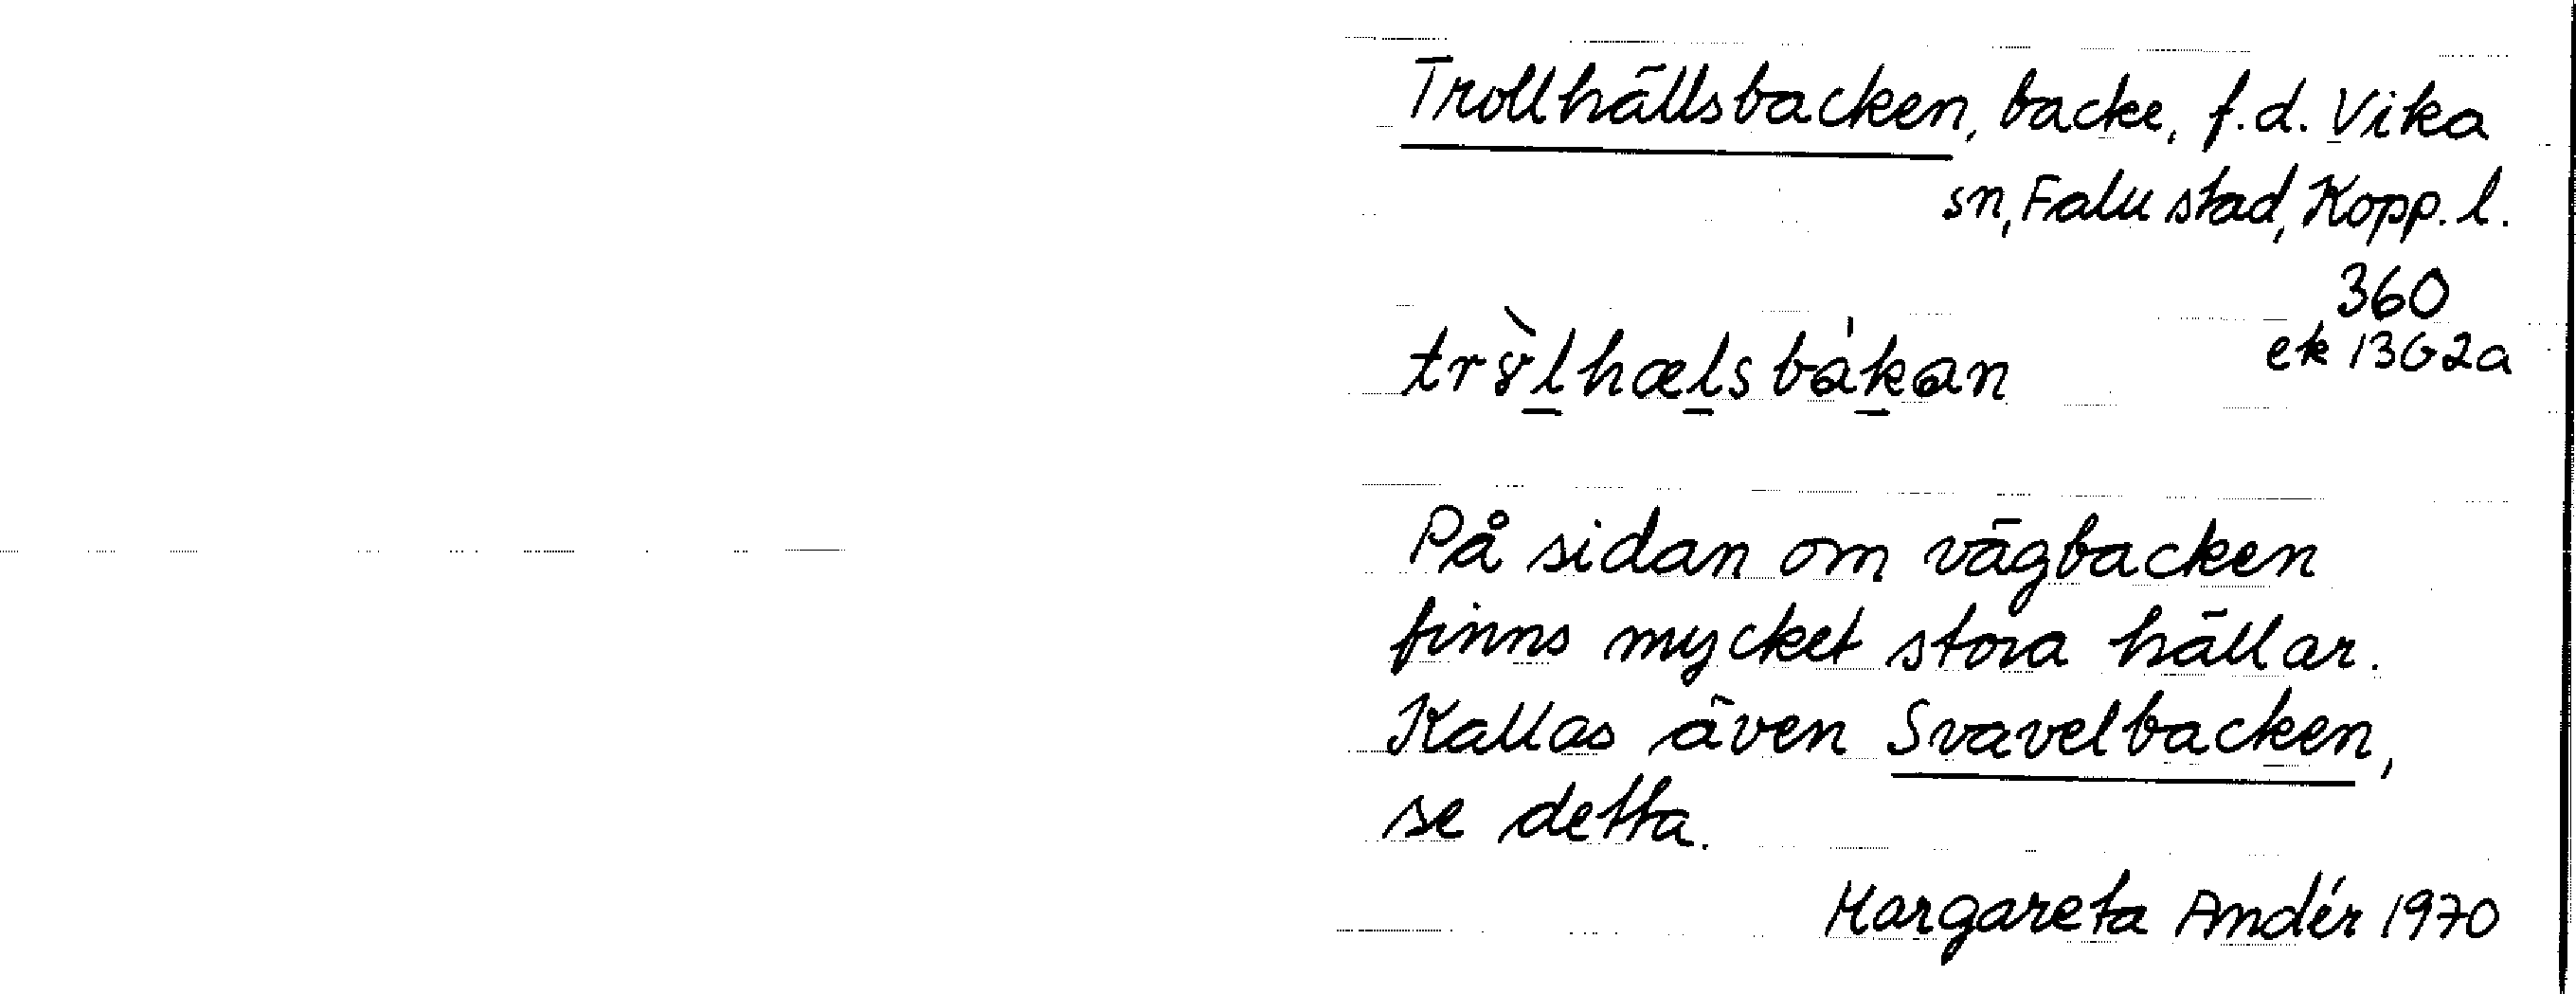 Trollhällsbacken, backe, f.d. Vika
sn, Falu stad, Kopp. l.
360
ek 13G2a
På sidan om vägbacken
finns mycket stora hällar.
Kallas även Svavelbacken,
se detta.
Margareta Andér 1970